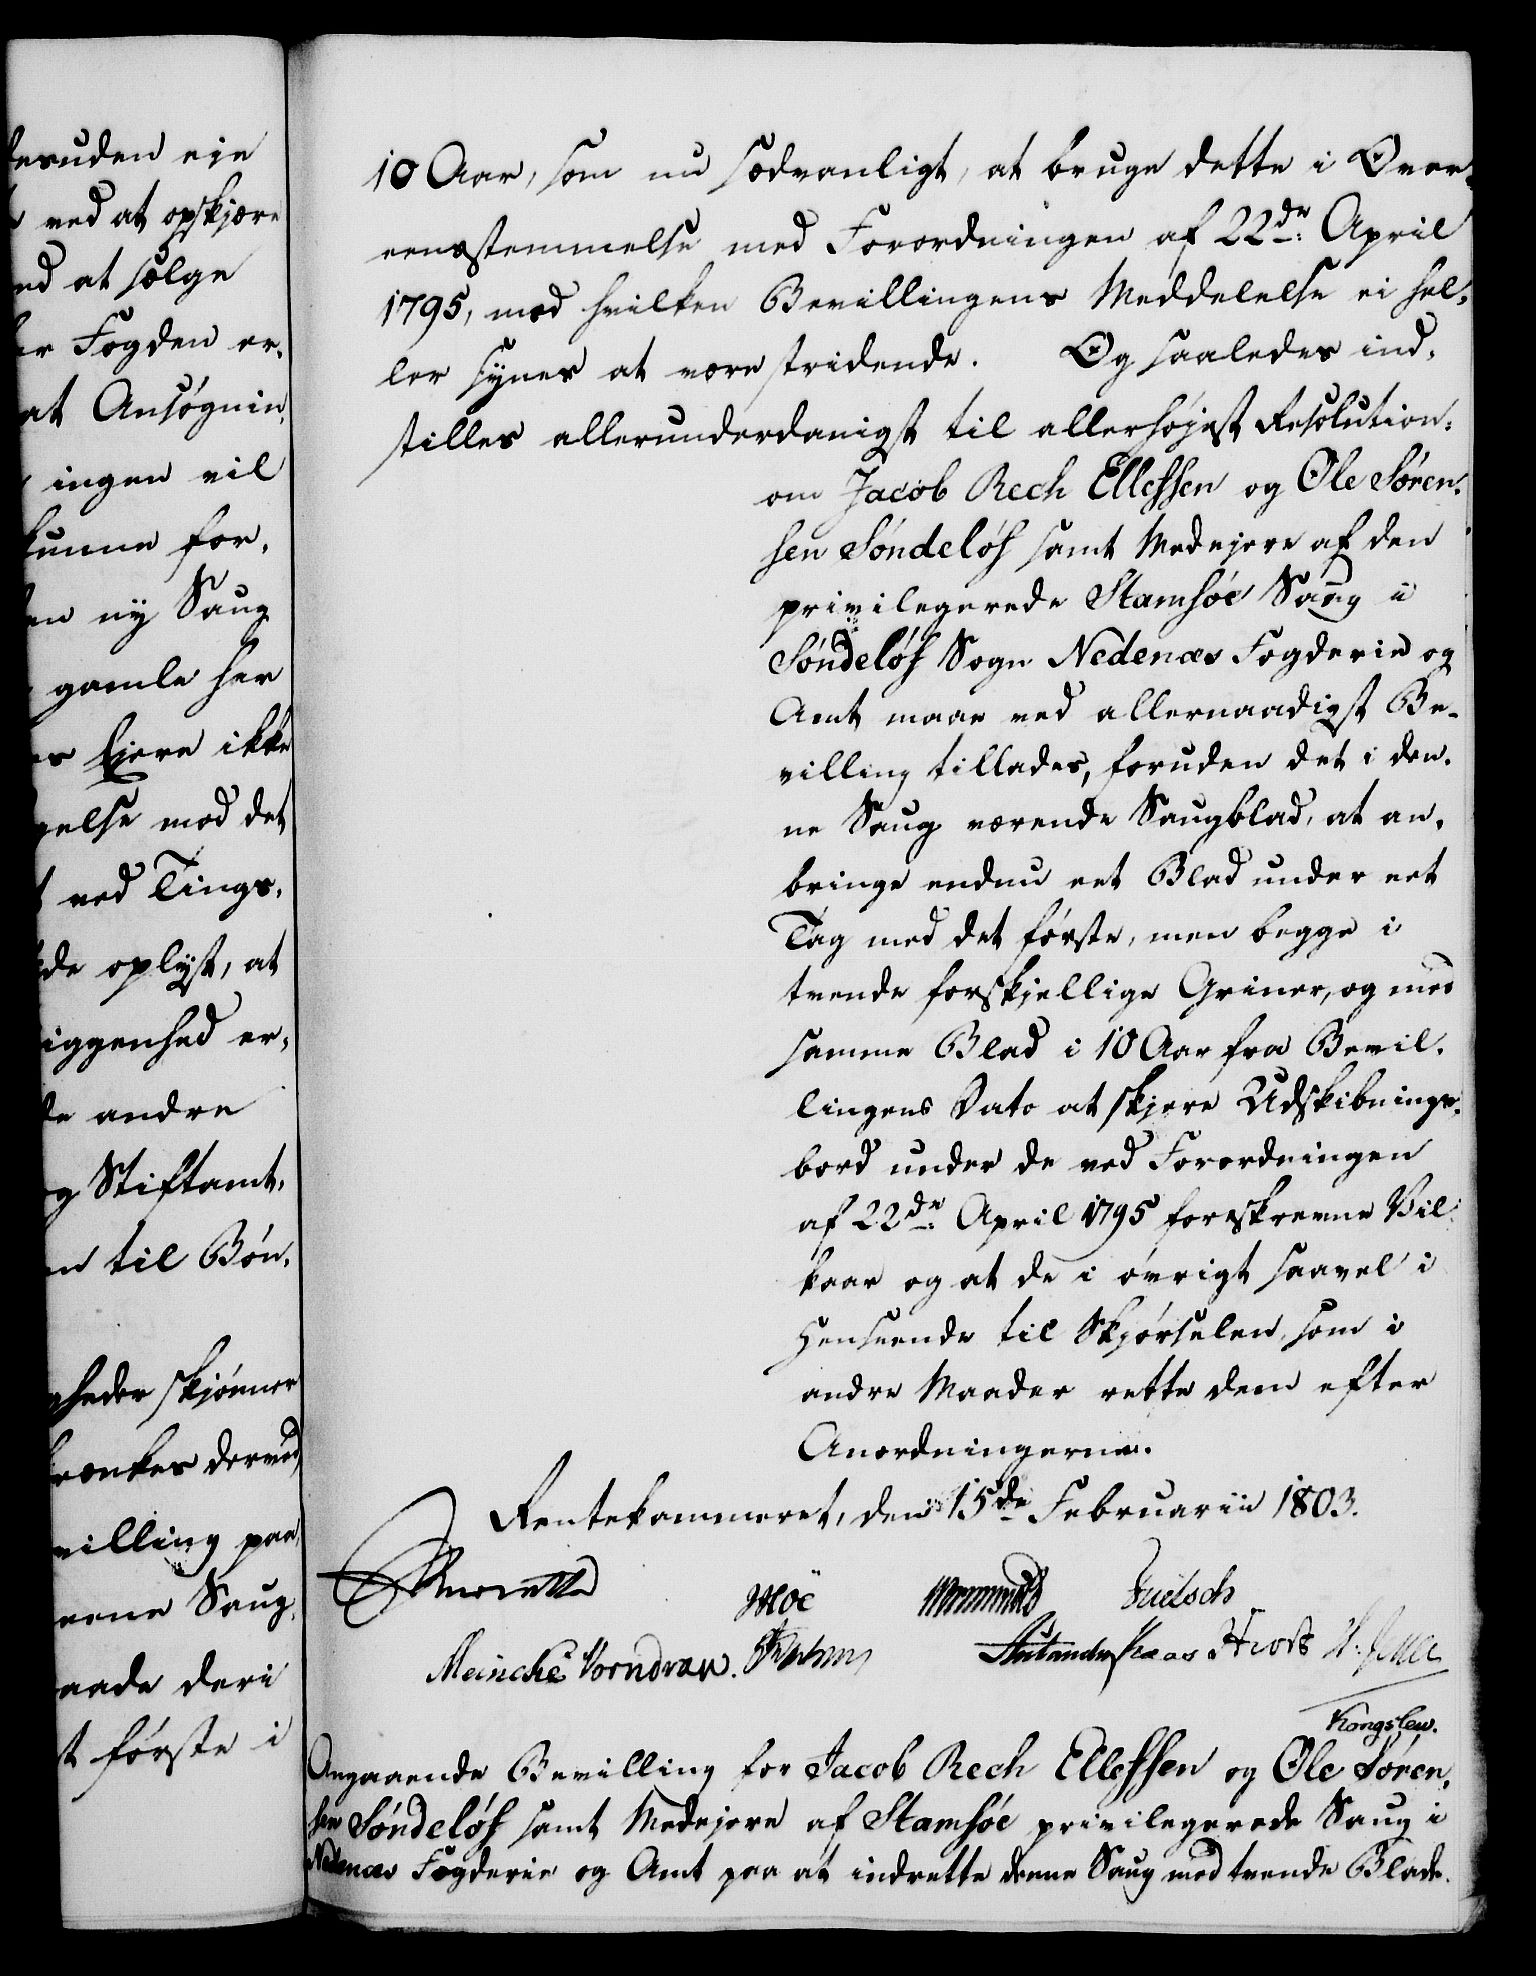 esuden eie
ved at opskjære
ed at sælge
er Fogden er-
at Ansøgnin-
ingen vil
kunne for-
en ny Saug
gamle her
es Ejere ikke
gelse mod det
ved Tings-
de oplyst, at
iggenhed er-
de andre
og Stiftamt-
n til Bøn-
heder skjønner
krænkes derved
villing paa
eene Saug-
aade deri
t første i
10 Aar, som nu sædvanligt, at bruge dette i Over-
eensstemmelse med Forordningen af 22de April
1795, mod hvilken Bevillingens Meddelelse ei hel-
ler synes at være stridende. Og saaledes ind-
stilles allerunderdanigst til allerhøjest Resolution:
om Jacob Rech Ellefsen og Ole Søren-
sen Søndeløf samt Medejere af den
privilegerede Stamsøe Saug i
Søndeløf Sogn Nedenæs Fogderie og
Amt maae ved allernaadigst Be-
villing tillades, foruden det i den-
ne Saug værende Saugblad, at an-
bringe endnu eet Blad under eet
Tag med det første, men begge i
tvende forskjellige Griner, og med
samme Blad i 10 Aar fra Bevil-
lingens Dato at skjere Udskibnings-
bord under de ved Forordningen
af 22de April 1795 foreskrevne Vil-
kaar og at de i øvrigt saavel i
Henseende til Skjørselen, som i
andre Maader rette dem efter
Anordningerne.
Rentekammeret, den 15de Februarii 1803.
Moë Wormskiold
Meincke Vorndran. Knas
Kongslew.
Angaaende Bevilling for Jacob Rech Ellefsen og Ole Søren-
sen Søndeløf samt Medejere af Stamsøe privilegerede Saug i
Nedenæs Fogderie og Amt paa at indrette denne Saug med tvende Blade.